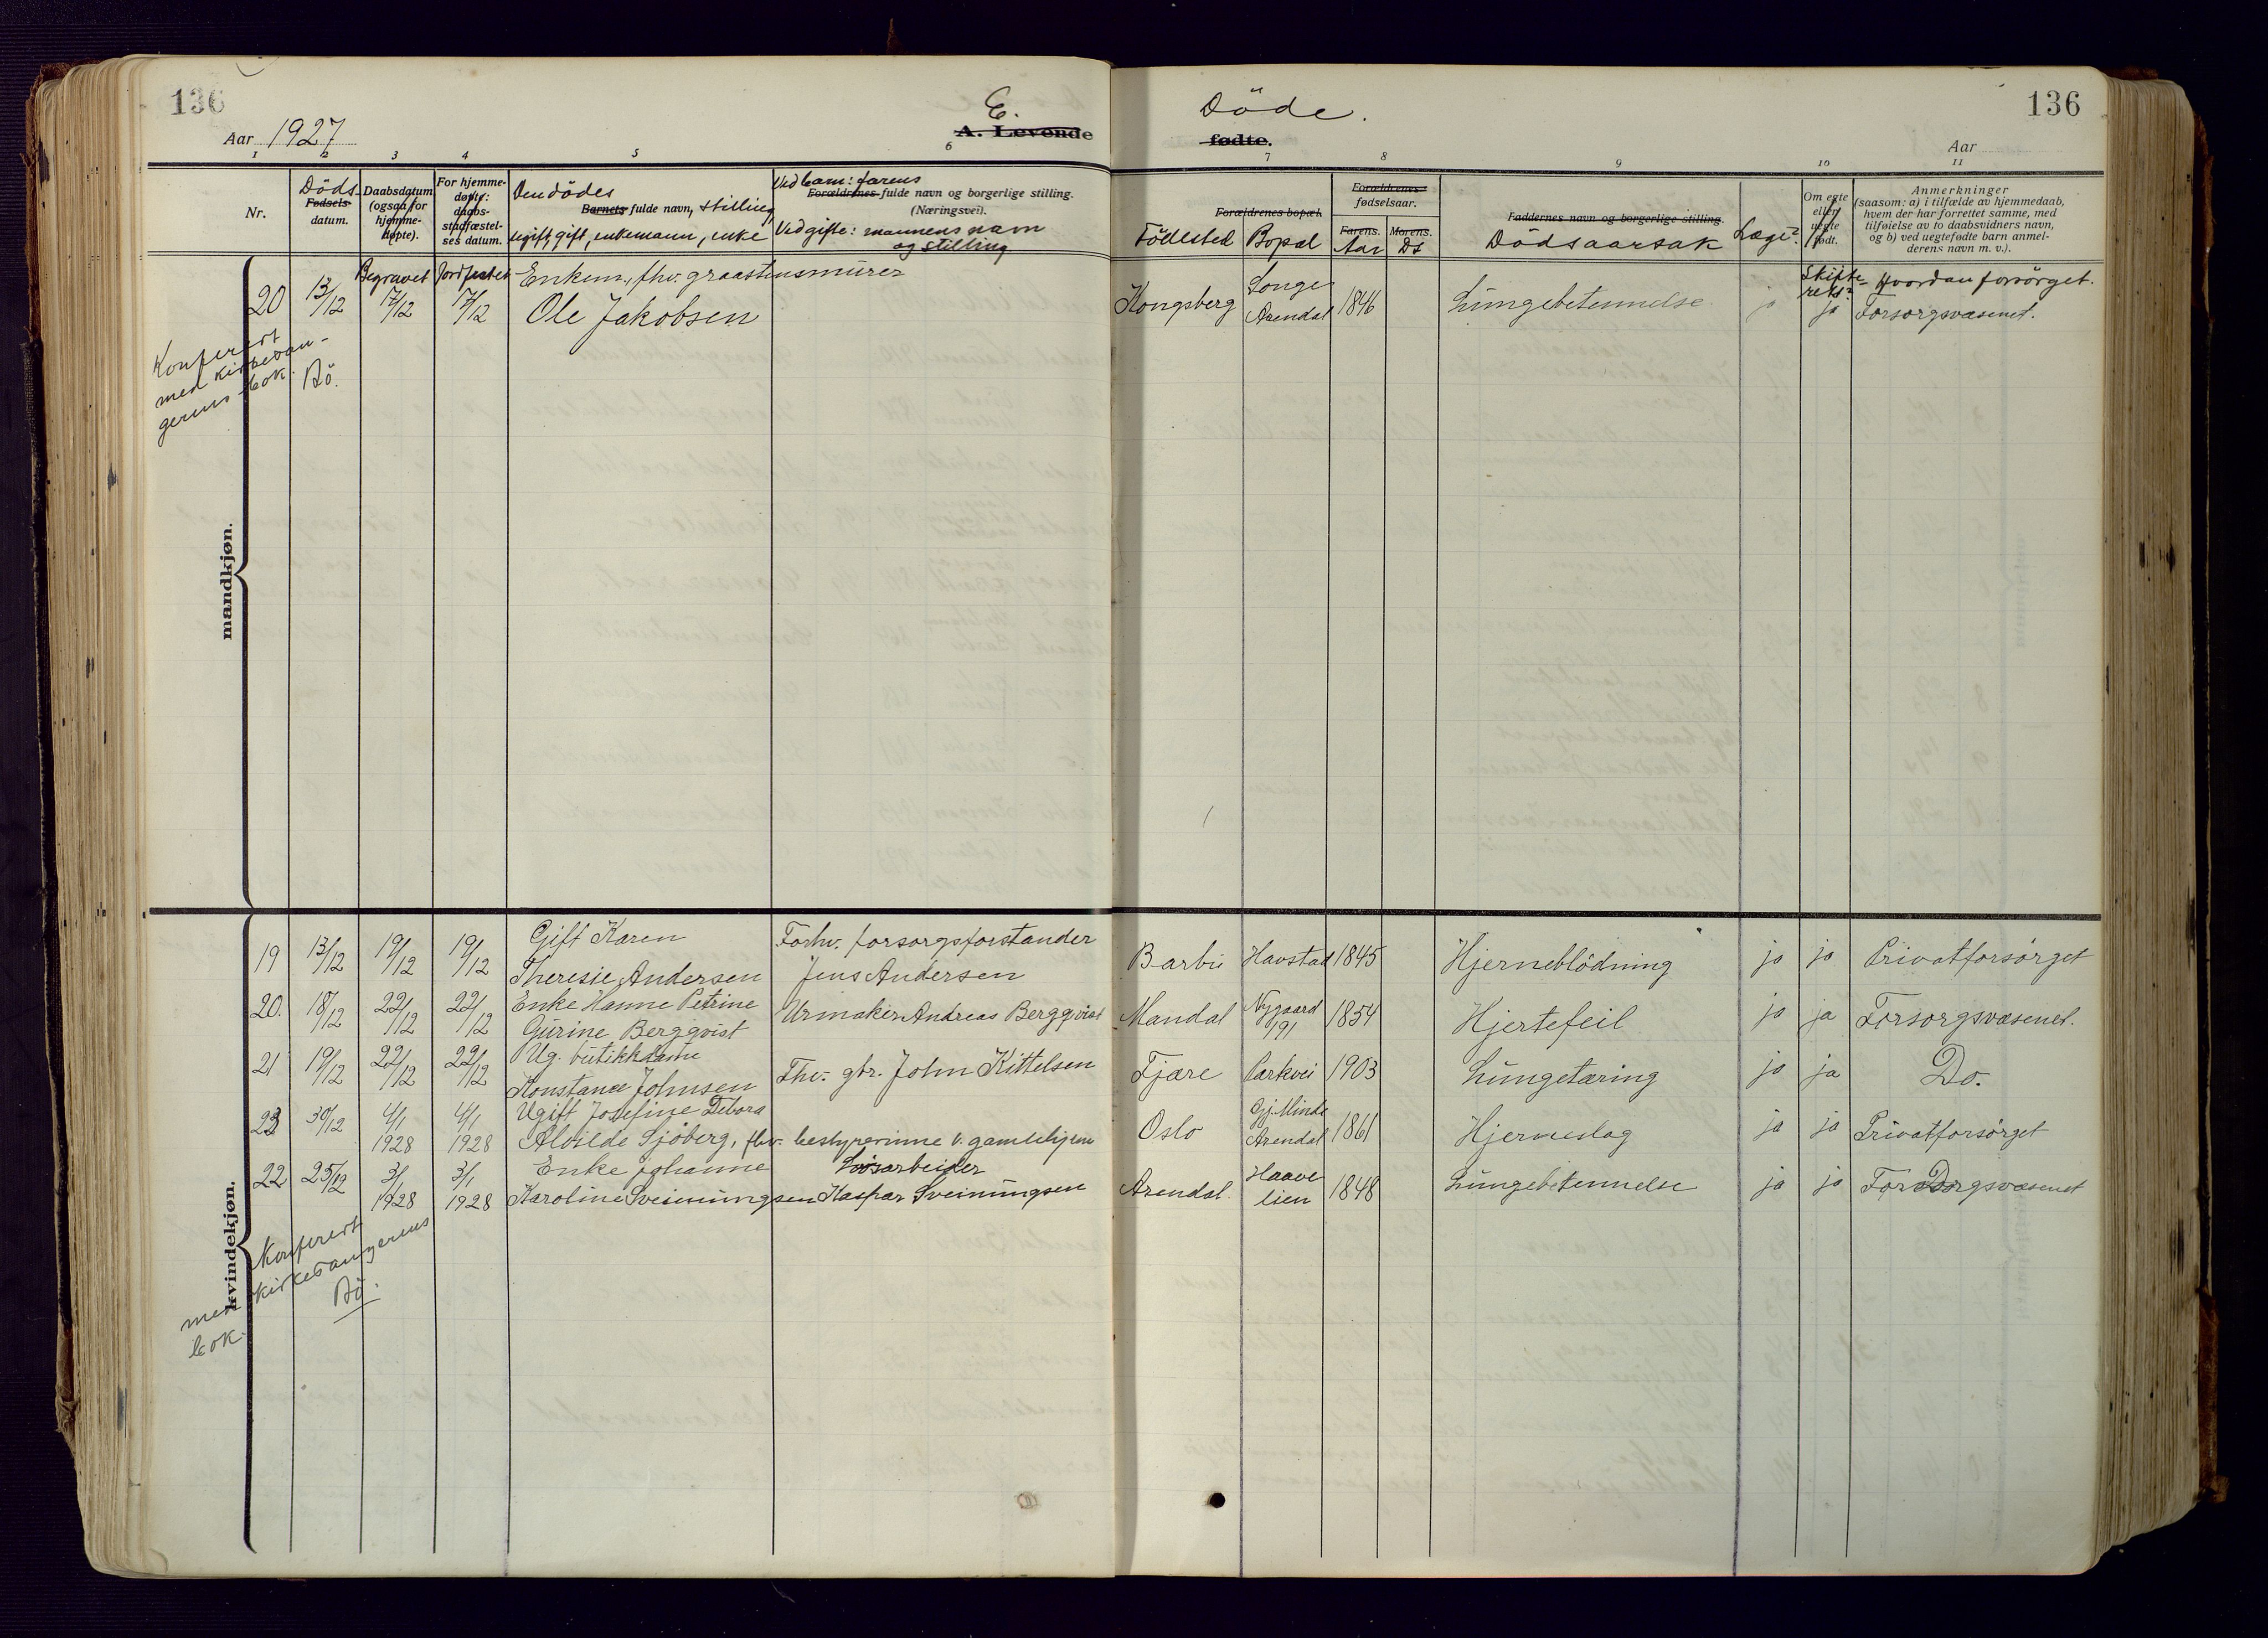 136
Aar 1927
E.
A. Levende
Döde.
fødte.
136
Aar
1 2 3 4 5 6 7 8 9 10 11
Nr.
Döds-
Fødsels-
datum.
Daabsdatum
(ogsaa for
hjemme-
døpte).
For hjemme-
døpte:
daabs-
stadfæstel-
ses datum.
Den dödes
Barnets fulde navn, stilling,
ugift, gift, enkemann, enke
Ved barn: farens
Forældrenes fulde navn og borgerlige stilling.
(Næringsvei).
Ved gifte: mannens navn
og stilling
Forældrenes bopæl.
Födested
Bopæl
Forældrenes
fødselsaar.
Farens.
Aar
Morens.
Ds
Faddernes navn og borgerlige stilling.
Dödsaarsak
Læge?
Om egte
eller
uegte
født.
Anmerkninger
(saasom: a) i tilfælde av hjemmedaab,
hvem der har forrettet samme, med
tilføielse av to daabsvidners navn,
og b) ved uegtefødte barn anmel-
derens navn m. v.).
Begravet Jordfestet
Skifte-
rett?
Hvordan forsörget.
mandkjøn.
20 13/12 17/12 17/12 Enkem., fhv. graastensmurer
Ole Jakobsen Kongsberg Songe
Arendal 1846 Lungebetennelse jo ja Forsorgsvæsenet.
Konferert
med kirkevær-
gerens bok.
Bö.
kvindekjøn.
19 13/12 19/12 19/12 Gift Karen
Theresie Andersen Forhv. forsorgsforstander
Jens Andersen Barbu Havstad 1845 Hjerneblödning jo ja Privatforsörget
20. 18/12 22/12 22/12 Enke Hanne Petrine
Gurine Bergqvist Urmaker Andreas Bergqvist Mandal Nygaard
191 1854 Hjertefeil jo ja Forsorgsvæsenet.
21 19/12 22/12 22/12 Ug. butikkdame
Konstance Johnsen Fhv. gbr. John Kittelsen Fjære Parkvei 1903 Lungetæring jo ja Do.
23 30/12 4/1
1928 4/1
1928 Ugift Josefine Debora
Alvilde Sjöberg, fhv. bestyrerinne v. gamlehjem Oslo Gj. Minde
Arendal 1861 Hjerneslag ja ja Privatforsörget
22 25/12 3/1
1928 3/1
1928 Enke Johanne
Karoline Sveinungsen Lösarbeider
Kaspar Sveinungsen Arendal. Haave-
lien 1848 Lungebetennelse ja jo Forsorgsvæsenet
Konferert
med kirkeværgerens
bok.
Bö.